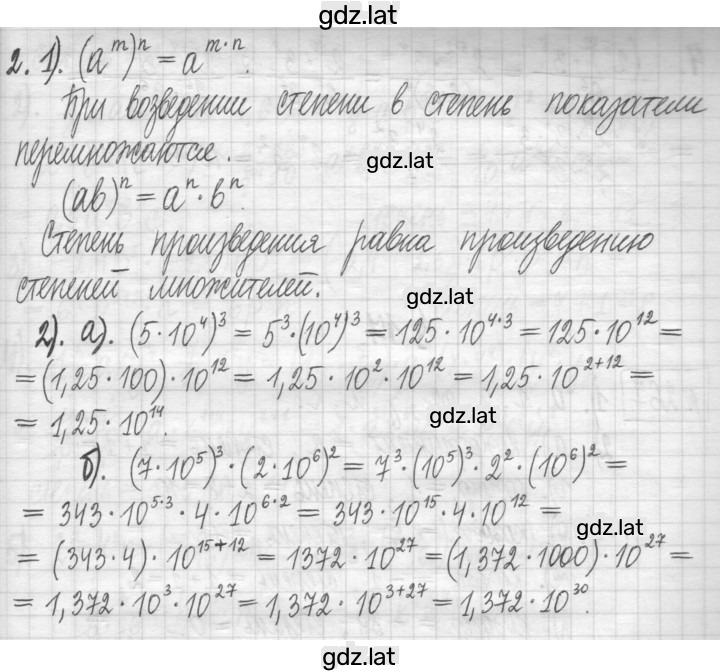 gdz.lat
2. 1). (a^m)^n = a^{m·n}.
При возведении степени в степень показатели
перемножаются.
gdz.lat
(ab)^n = a^n · b^n.
Степень произведения равна произведению
степеней множителей.
gdz.lat
2). а). (5·10^4)^3 = 5^3·(10^4)^3 = 125·10^{4·3} = 125·10^{12} =
= (1,25·100)·10^{12} = 1,25·10^2·10^{12} = 1,25·10^{2+12} =
= 1,25·10^{14}.
gdz.lat
б). (7·10^5)^3·(2·10^6)^2 = 7^3·(10^5)^3·2^2·(10^6)^2 =
= 343·10^{5·3}·4·10^{6·2} = 343·10^{15}·4·10^{12} =
gdz.lat
= (343·4)·10^{15+12} = 1372·10^{27} = (1,372·1000)·10^{27} =
= 1,372·10^3·10^{27} = 1,372·10^{3+27} = 1,372·10^{30}.
gdz.lat